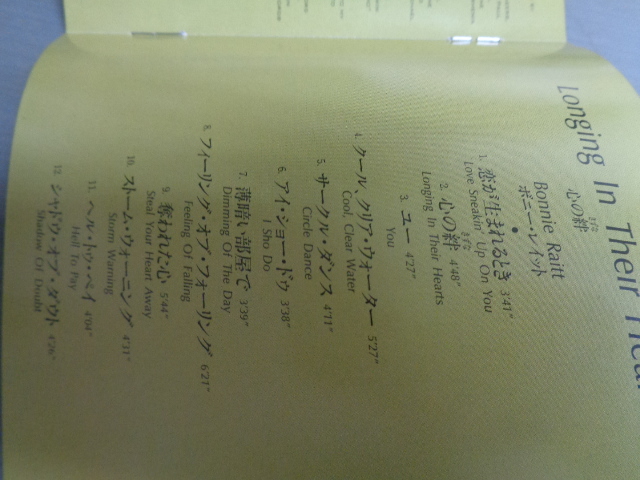 Longing In Their Hear
心の絆
きずな
Bonnie Raitt
ボニー・レイット
1. 恋が生まれるとき 3'41"
Love Sneakin' Up On You
2. 心の絆 4'48"
きずな
Longing In Their Hearts
3. ユー 4'27"
You
4. クール, クリア・ウォーター 5'27"
Cool, Clear Water
5. サークル・ダンス 4'11"
Circle Dance
6. アイ・ショー・ドゥ 3'38"
I Sho Do
7. 薄暗い部屋で 3'39"
Dimming Of The Day
8. フィーリング・オブ・フォーリング 6'21"
Feeling Of Falling
9. 奪われた心 5'44"
Steal Your Heart Away
10. ストーム・ウォーニング 4'11"
Storm Warning
11. ヘル・トゥ・ペイ 4'04"
Hell To Pay
12. シャドウ・オブ・ダウト 4'26"
Shadow Of Doubt